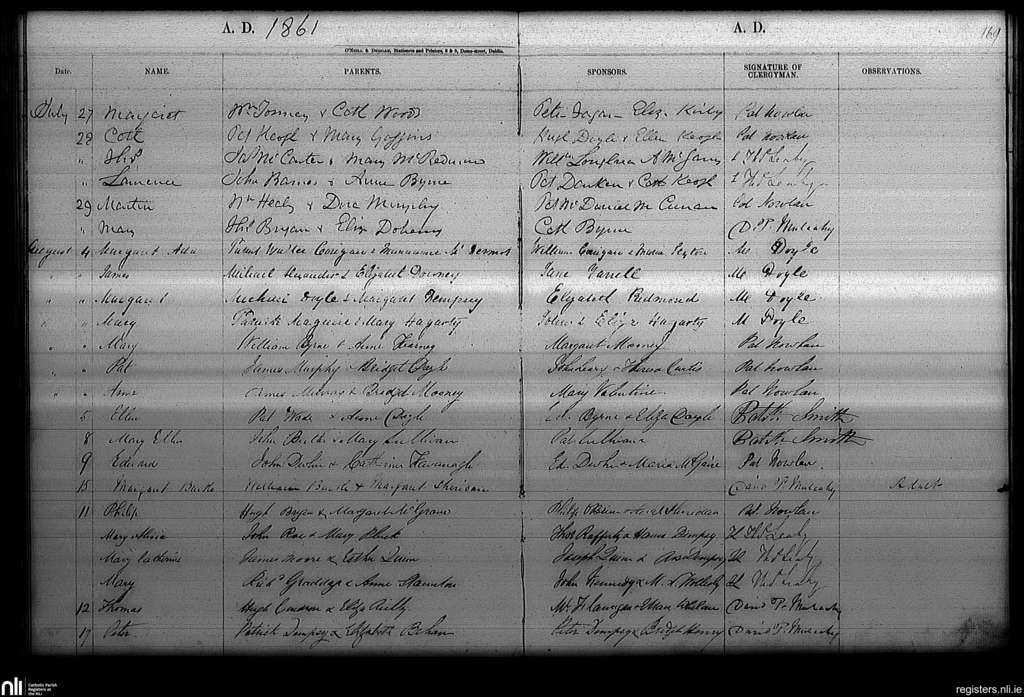 A. D. 1861 A. D. 169
O'Neill & Duggan, Stationers and Printers, 8 & 9, Dame-street, Dublin.
Date. NAME. PARENTS. SPONSORS. SIGNATURE OF CLERGYMAN. OBSERVATIONS.
July 27 Margaret Wm & Cath Woods Peter Eliza Kirby Pat Nowlan
28 Cath Pat Keogh & Mary Goggins Hugh Doyle & Ellen Keogh Pat Nowlan
" Thos Jas McCarter & Mary McRedmond Willm A McGarry L Thos Leahy
" Lawrence John Barnes & Anne Byrne Pat & Cath Keogh L Thos Leahy
29 Martin Wm Healy & Dora Murphy Pat McDaniel M Curran Pat Nowlan
" Mary Thos Bryan & Eliza Doheny Cath Byrne D. P. Mulcahy
August 4 Margaret Ada Corrigan & Dermot William Corrigan & Maria Sexton M Doyle
" " James Michael Alexander & Elizabeth Downey Jane Farrell M Doyle
" " Margaret Michael Doyle & Margaret Dempsey Elizabeth Redmond M Doyle
" " Mary Patrick Maguire & Mary Hagarty John & Eliza Hagarty M Doyle
" " Mary William Byrne & Anne Kearney Margaret Mooney Pat Nowlan
" " Pat James Murphy & Bridget Doyle John Leary & Theresa Curtis Pat Nowlan
" " Anne James Murray & Bridget Mooney Mary Valentine Pat Nowlan
5 Ellen Pat Wade & Anne Doyle Byrne & Eliza Doyle Batth Smith
8 Mary Ellen John & Mary Sullivan Pat Sullivan Batth Smith
9 Edward John & Catherine Kavanagh Ed. & Maria McGuire Pat Nowlan
15 Margaret Burke William Burke & Margaret Sheridan David P. Mulcahy Adult
11 Philip Hugh Bryan & Margaret McGrane Philip & Sheridan Pat. Nowlan
Mary John Roe & Mary Thos Rafferty & Dempsey L Thos Leahy
Mary Catherine James Moore & Esther Dunn Joseph Dunn & Dempsey L Thos Leahy
Mary Richd & Anne Staunton John Kennedy & M. L Thos Leahy
12 Thomas Hugh & Eliza Reilly Mr Flanagan & David P. Mulcahy
17 Peter Patrick Dempsey & Elizabeth Behan Peter Dempsey & Bridget Henry David P. Mulcahy
nli Catholic Parish Registers at the NLI
registers.nli.ie